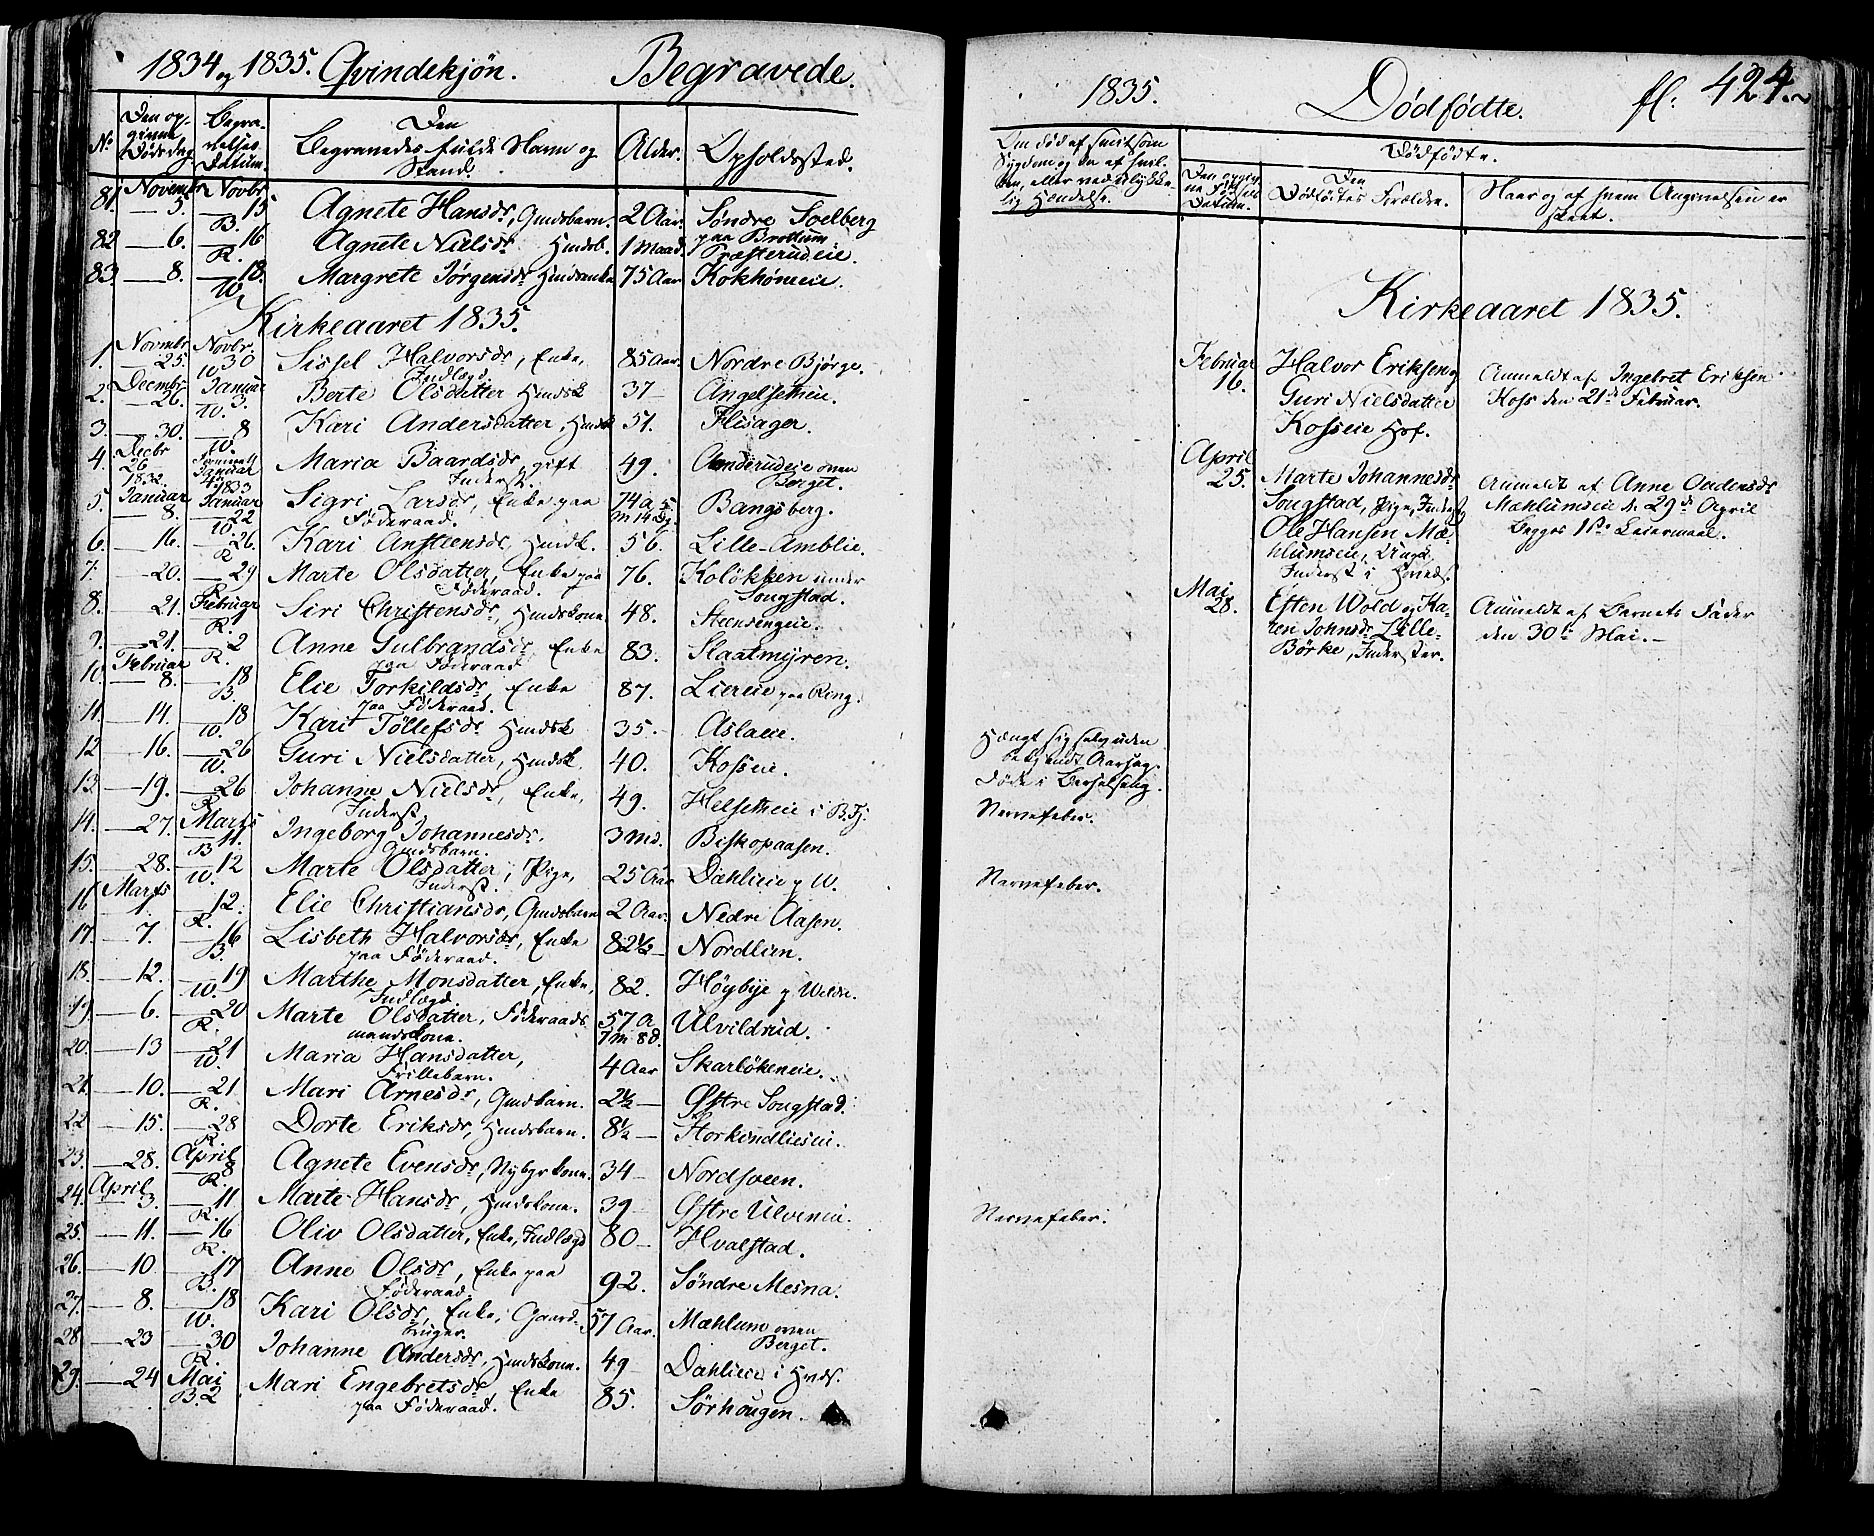 1834 og 1835. Qvindekjön. Begravede.
No
Den op-
givne
Dödsdag
Begra-
velses
Datum.
Den
Begravedes fulde Navn og
Stand.
Alder.
Opholdssted.
81 Novembr 5. Novbr 15 B. Agnete Hansdr, Gmdsbarn. 2 Aar. Söndre Soelberg
paa Brottum
82 6. 16 R. Agnete Nielsdr Hmdsb. 1 Maad. Præsterudeie.
83 8. 18. W. Margrete Jörgensdr Hmdsenke 75 Aar Kokhömeie.
Kirkeaaret 1835.
1. Novmbr 25. Novbr. 30 W. Sissel Halvorsdr, Enke,
Indlægd. 85 Aar. Nordre Bjørge.
2. Decmbr 26. Januar 3. W. Berte Olsdatter Hmdsk 37 Angelsetheie.
3. 30. 8 W. Kari Andersdatter, Hmdsk 51. Flisager.
4. Decbr 26 1832. Januar 4de 1833 Maria Baardsdr, gift
Inderst. 49. Amdrudeie oven
Berget.
5. Januar 8. Januar 22 W. Sigri Larsdr, Enke paa
Föderaad. 74 a 5
M 14 Dg. Bangsberg.
6. 16. 26. R. Kari Anstensdr, Hmdk. 56. Lille-Amblie.
7. 20. 29 Marte Olsdatter, Enke paa
Föderaad. 76. Kolökken under
Songstad.
8. 21. Februar R. Siri Christensdr, Hmdskone 48. Steensengeie.
9. 21. 2 R. Anne Gulbrandsdr, Enke
paa Föderaad 83. Slaatmyren.
10. Februar 8. 18 B. Elie Torkildsdr, Enke
paa Föderaad. 87. Liereie paa Ring.
11. 14. 18 W. Kari Töllefsdr Hmdsk 35. Aslaeie.
12 16. 26 W. Guri Nielsdatter, Hmdsk. 40. Kosseie.
13. 19. 26 R. Johanne Nielsdr, Enke,
Inderst 49. Helsetheie i B.Fj.
14. 27. Marts 11. B Ingeborg Johannesdr,
Gmdsbarn. 3 Md. Biskopaasen.
15. 28. 12 W. Marte Olsdatter, Pige,
Inderst. 25 Aar Dahlieie p W.
16 Marts 1. 12. R. Elie Christiansdr, Gmdsbarn 2 Aar. Nedre Aasen.
17. 7. 16 B. Lisbeth Halvorsdr, Enke
paa Föderaad. 82½ Nordlien.
18. 12. 19 W. Marthe Monsdatter, Enke,
Indlægd. 82. Høybye p Weldr.
19. 6. 20 R. Marte Olsdatter, Föderaads-
mandskone. 57 A
7 m 8 d. Ulvildrud.
20. 13 21 W. Maria Hansdatter,
Frillebarn. 4 Aar Skarlökeneie.
21. 10. 21 R. Mari Arnesdr, Gmdbarn. 2½ Østre Songstad.
22 15. 28 R. Dorte Eriksdr, Hmdsbarn. 8½ Storkindlieseie.
23. 28. April 8 R. Agnete Evensdr, Nybgrkone. 34 Nordsveen.
24. April 3. 11 R. Marte Hansdr, Hmdskone. 39 Østre Ulveneie.
25. 11. 16 R. Oliv Olsdatter, Enke, Indlægd 80 Hvalstad.
26. 10 17 B. Anne Olsdr, Enke paa
Föderaad. 92. Söndre Mesna.
27. 8. 18 W. Kari Olsdr, Enke, Gaard-
bruger. 57 Aar. Mæhlum oven
Berget.
28. 23 30 R. Johanne Andersdr, Hmdskone. 49 Dahlieie i Hvds.
29. 24 Mai 2 B. Mari Engebretsdr, Enke
paa Föderaad. 85. Sørhougen.
1835. Dödfödte. fl. 424.
Om död af smitsom
Sygdom og da af hvil-
ken, eller ved ulykke-
lig Hændelse.
Dödfödte.
Den opgiv-
ne Födsels
Datum.
Den
Dödfödtes Forældre.
Naar og af hvem Angivelsen er
skeet.
Kirkeaaret 1835.
Februar 16. Halvor Eriksen og
Guri Nielsdatter
Kosseie Hof. Anmeldt af Ingebret Eriksen
Koss den 21de Februar.
April 25. Marte Johannesdr
Songstad, Pige, Inderst og
Ole Hansen Mæ-
hlumseie, Ungk.
Inderst i Hveds. Anmeldt af Anne Audensdr
Mæhlumseie d. 29de April
Begges 1ste Leiermaal.
Mai 28. Esten Wold og Ka-
ren Johnsdr Lille-
Börke, Inderster. Anmeldt af Barnets Fader
den 30te Mai.
Hængt sig selv uden
bekjendt Aarsag.
Döde i Barselseng.
Nervefeber.
Nervefeber.
Nervefeber.